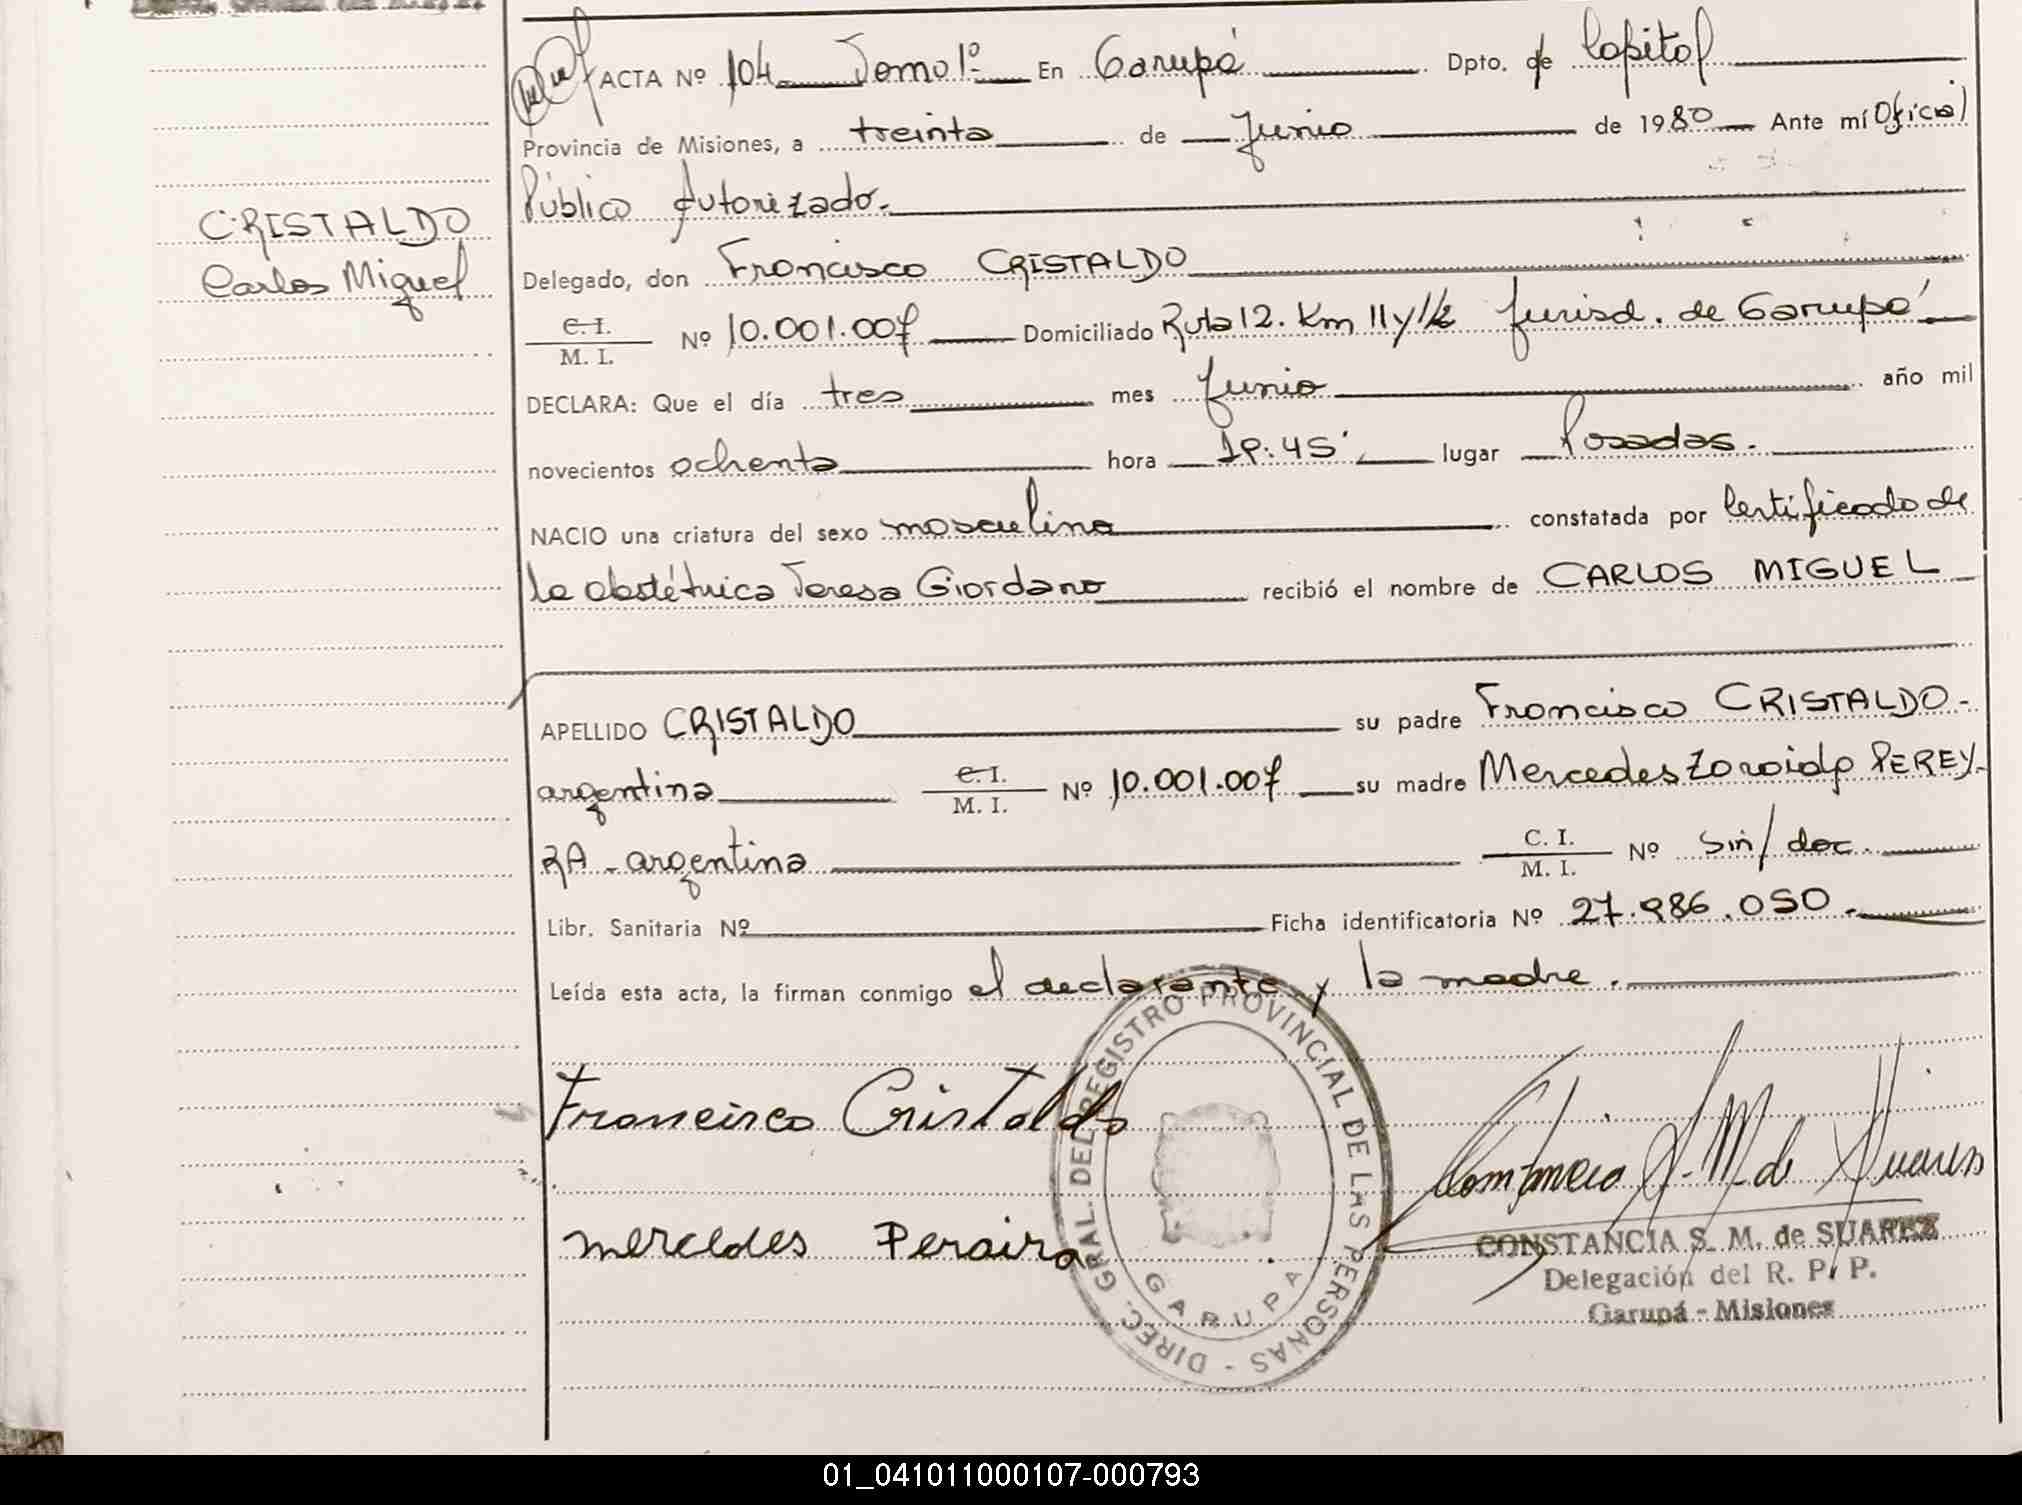 ACTA Nº 104 Tomo 1º En Garupá Dpto. de Capital
Provincia de Misiones, a treinta de Junio de 1980 Ante mí Oficial
Público Autorizado.
CRISTALDO
Carlos Miguel
Delegado, don Francisco CRISTALDO
C. I.
M. I. Nº 10.001.007 Domiciliado Ruta 12. Km 11 y 1/2 Jurisd. de Garupá
DECLARA: Que el día tres mes Junio año mil
novecientos ochenta hora 19:45' lugar Posadas.
NACIO una criatura del sexo masculino constatada por Certificado de
la obstétrica Teresa Giordano recibió el nombre de CARLOS MIGUEL
APELLIDO CRISTALDO su padre Francisco CRISTALDO-
argentina C. I. M. I. Nº 10.001.007 su madre Mercedes Zoraida PEREY-
RA - argentina C. I. M. I. Nº sin/doc.
Libr. Sanitaria Nº Ficha identificatoria Nº 27.986.050.
Leída esta acta, la firman conmigo el declarante y la madre.
Francisco Cristaldo
mercedes Peraira
DIREC. GRAL. DEL REGISTRO PROVINCIAL DE LAS PERSONAS -
GARUPA
Constancia S. M. de Suarez
CONSTANCIA S. M. de SUAREZ
Delegación del R. P. P.
Garupá - Misiones
01_041011000107-000793